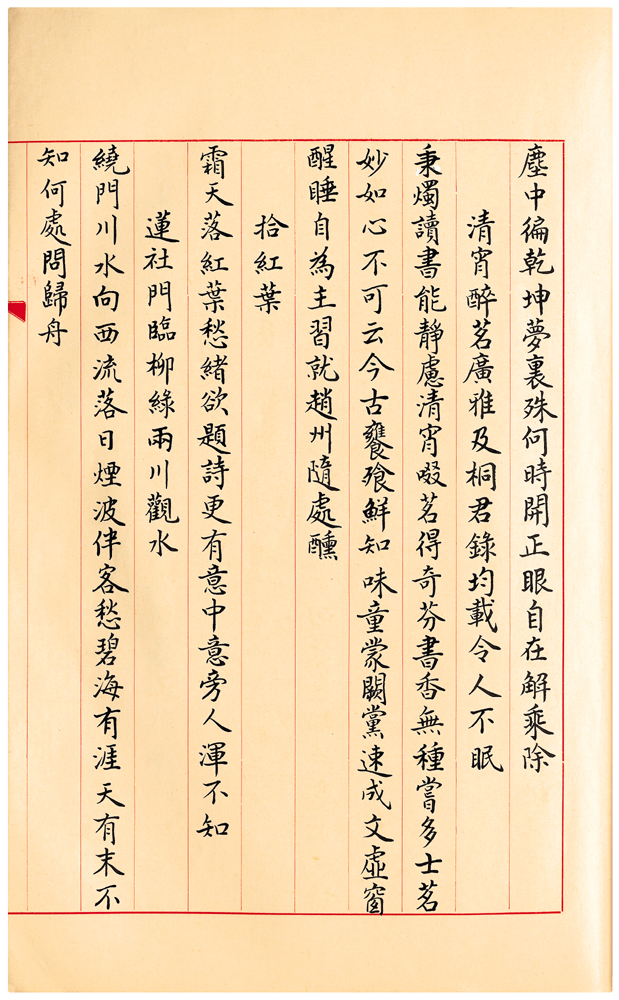 塵中徧乾坤夢裏殊何時開正眼自在解乘除
清宵醉茗廣雅及桐君錄均載令人不眠
秉燭讀書能靜慮清宵啜茗得奇芬書香無種嘗多士茗
妙如心不可云今古饔飱鮮知味童蒙闕黨速成文虛窗
醒睡自為主習就趙州隨處醺
拾紅葉
霜天落紅葉愁緒欲題詩更有意中意旁人渾不知
蓮社門臨柳綠兩川觀水
繞門川水向西流落日煙波伴客愁碧海有涯天有末不
知何處問歸舟